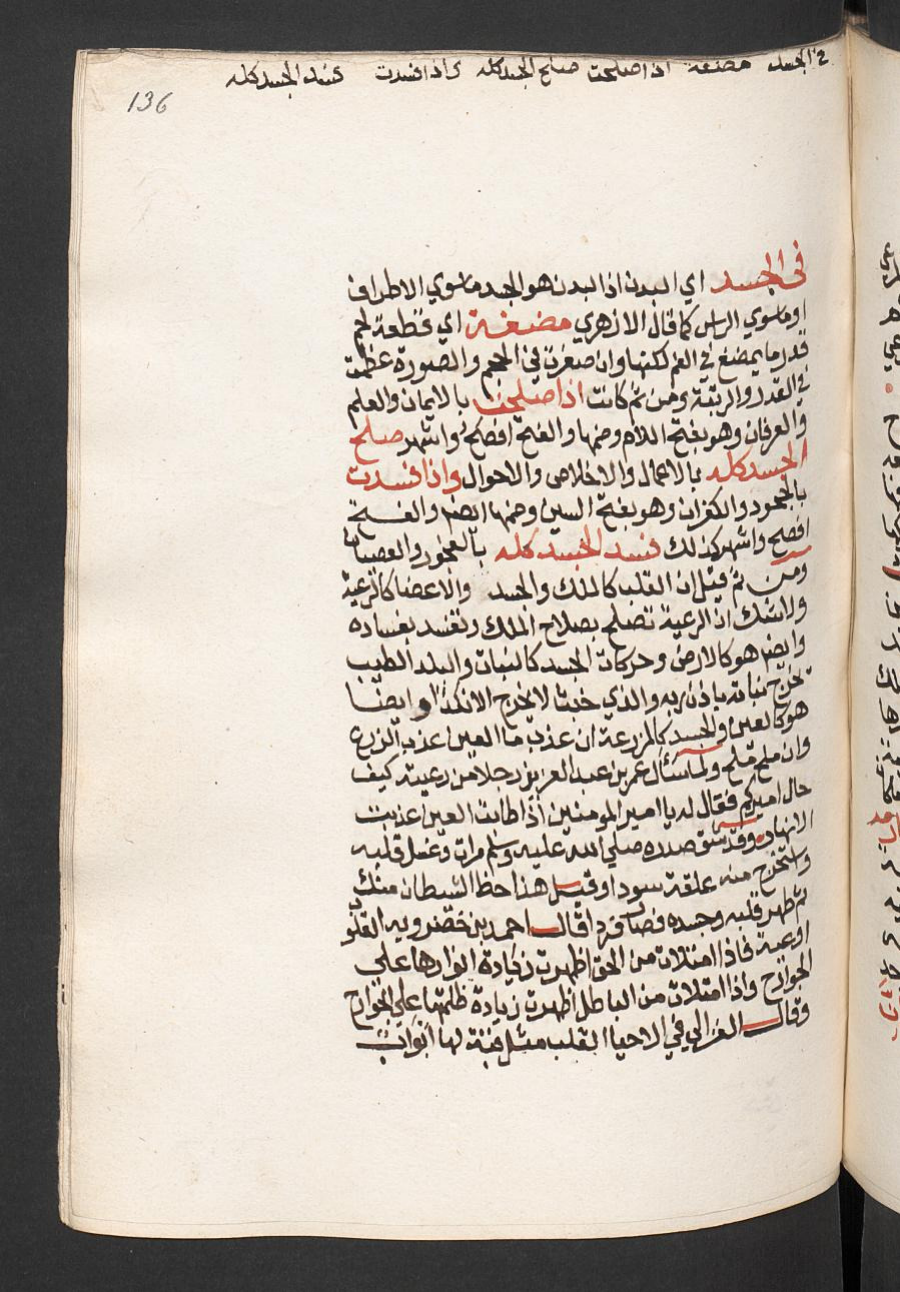 في الجسد مضغة اذا صلحت صلح الجسد كله واذا فسدت فسد الجسد كله
136
في الجسد اي البدن اذ البدن هو الجسد ما سوي الاطراف
او ما سوي الراس كما قال الازهري مضغة اي قطعة لحم
قدر ما يمضغ في الفم لكنها وان صغرت في الحجم والصورة عظمت
في القدر والرتبة ومن ثم كانت اذا صلحت بالايمان والعلم
والعرفان وهو بفتح اللام وضمها والفتح افصح واشهر صلح
الجسد كله بالاعمال والاخلاص والاحوال واذا فسدت
بالجحود والكفران وهو بفتح السين وضمها ايضا والفتح
افصح واشهر كذلك فسد الجسد كله بالفجور والعصيان
ومن ثم قيل ان القلب كالملك والجسد والاعضا كالرعية
ولا شك ان الرعية تصلح بصلاح الملك وتفسد بفساده
وايضا هو كالارض وحركات الجسد كالنبات والبلد الطيب
تخرج نباته باذن ربه والذي خبث لا يخرج الا نكدا او ايضا
هو كالعين والجسد كالمزرعة ان عذب ما العين عذب الزرع
وان ملح ملح ولما سئال عمر بن عبد العزيز رجلا من رعيته كيف
حال اميركم فقال له يا امير المومنين اذا طابت العين عذبت
الانهار وقد شق صدره صلي الله عليه وسلم مرات وغسل قلبه
واستخرج منه علقة سودا وقيل هذا حظ الشيطان منك
ثم طهر قلبه وجسده فصار فردا قال احمد بن خضرويه القلوب
اوعية فاذا امتلات من الحق اظهرت زيادة انوارها علي
الجوارح واذا امتلات من الباطل اظهرت زيادة ظلمتها علي الجوارح
وقال الغزالي في الاحيا القلب مثل قبة لها ابواب